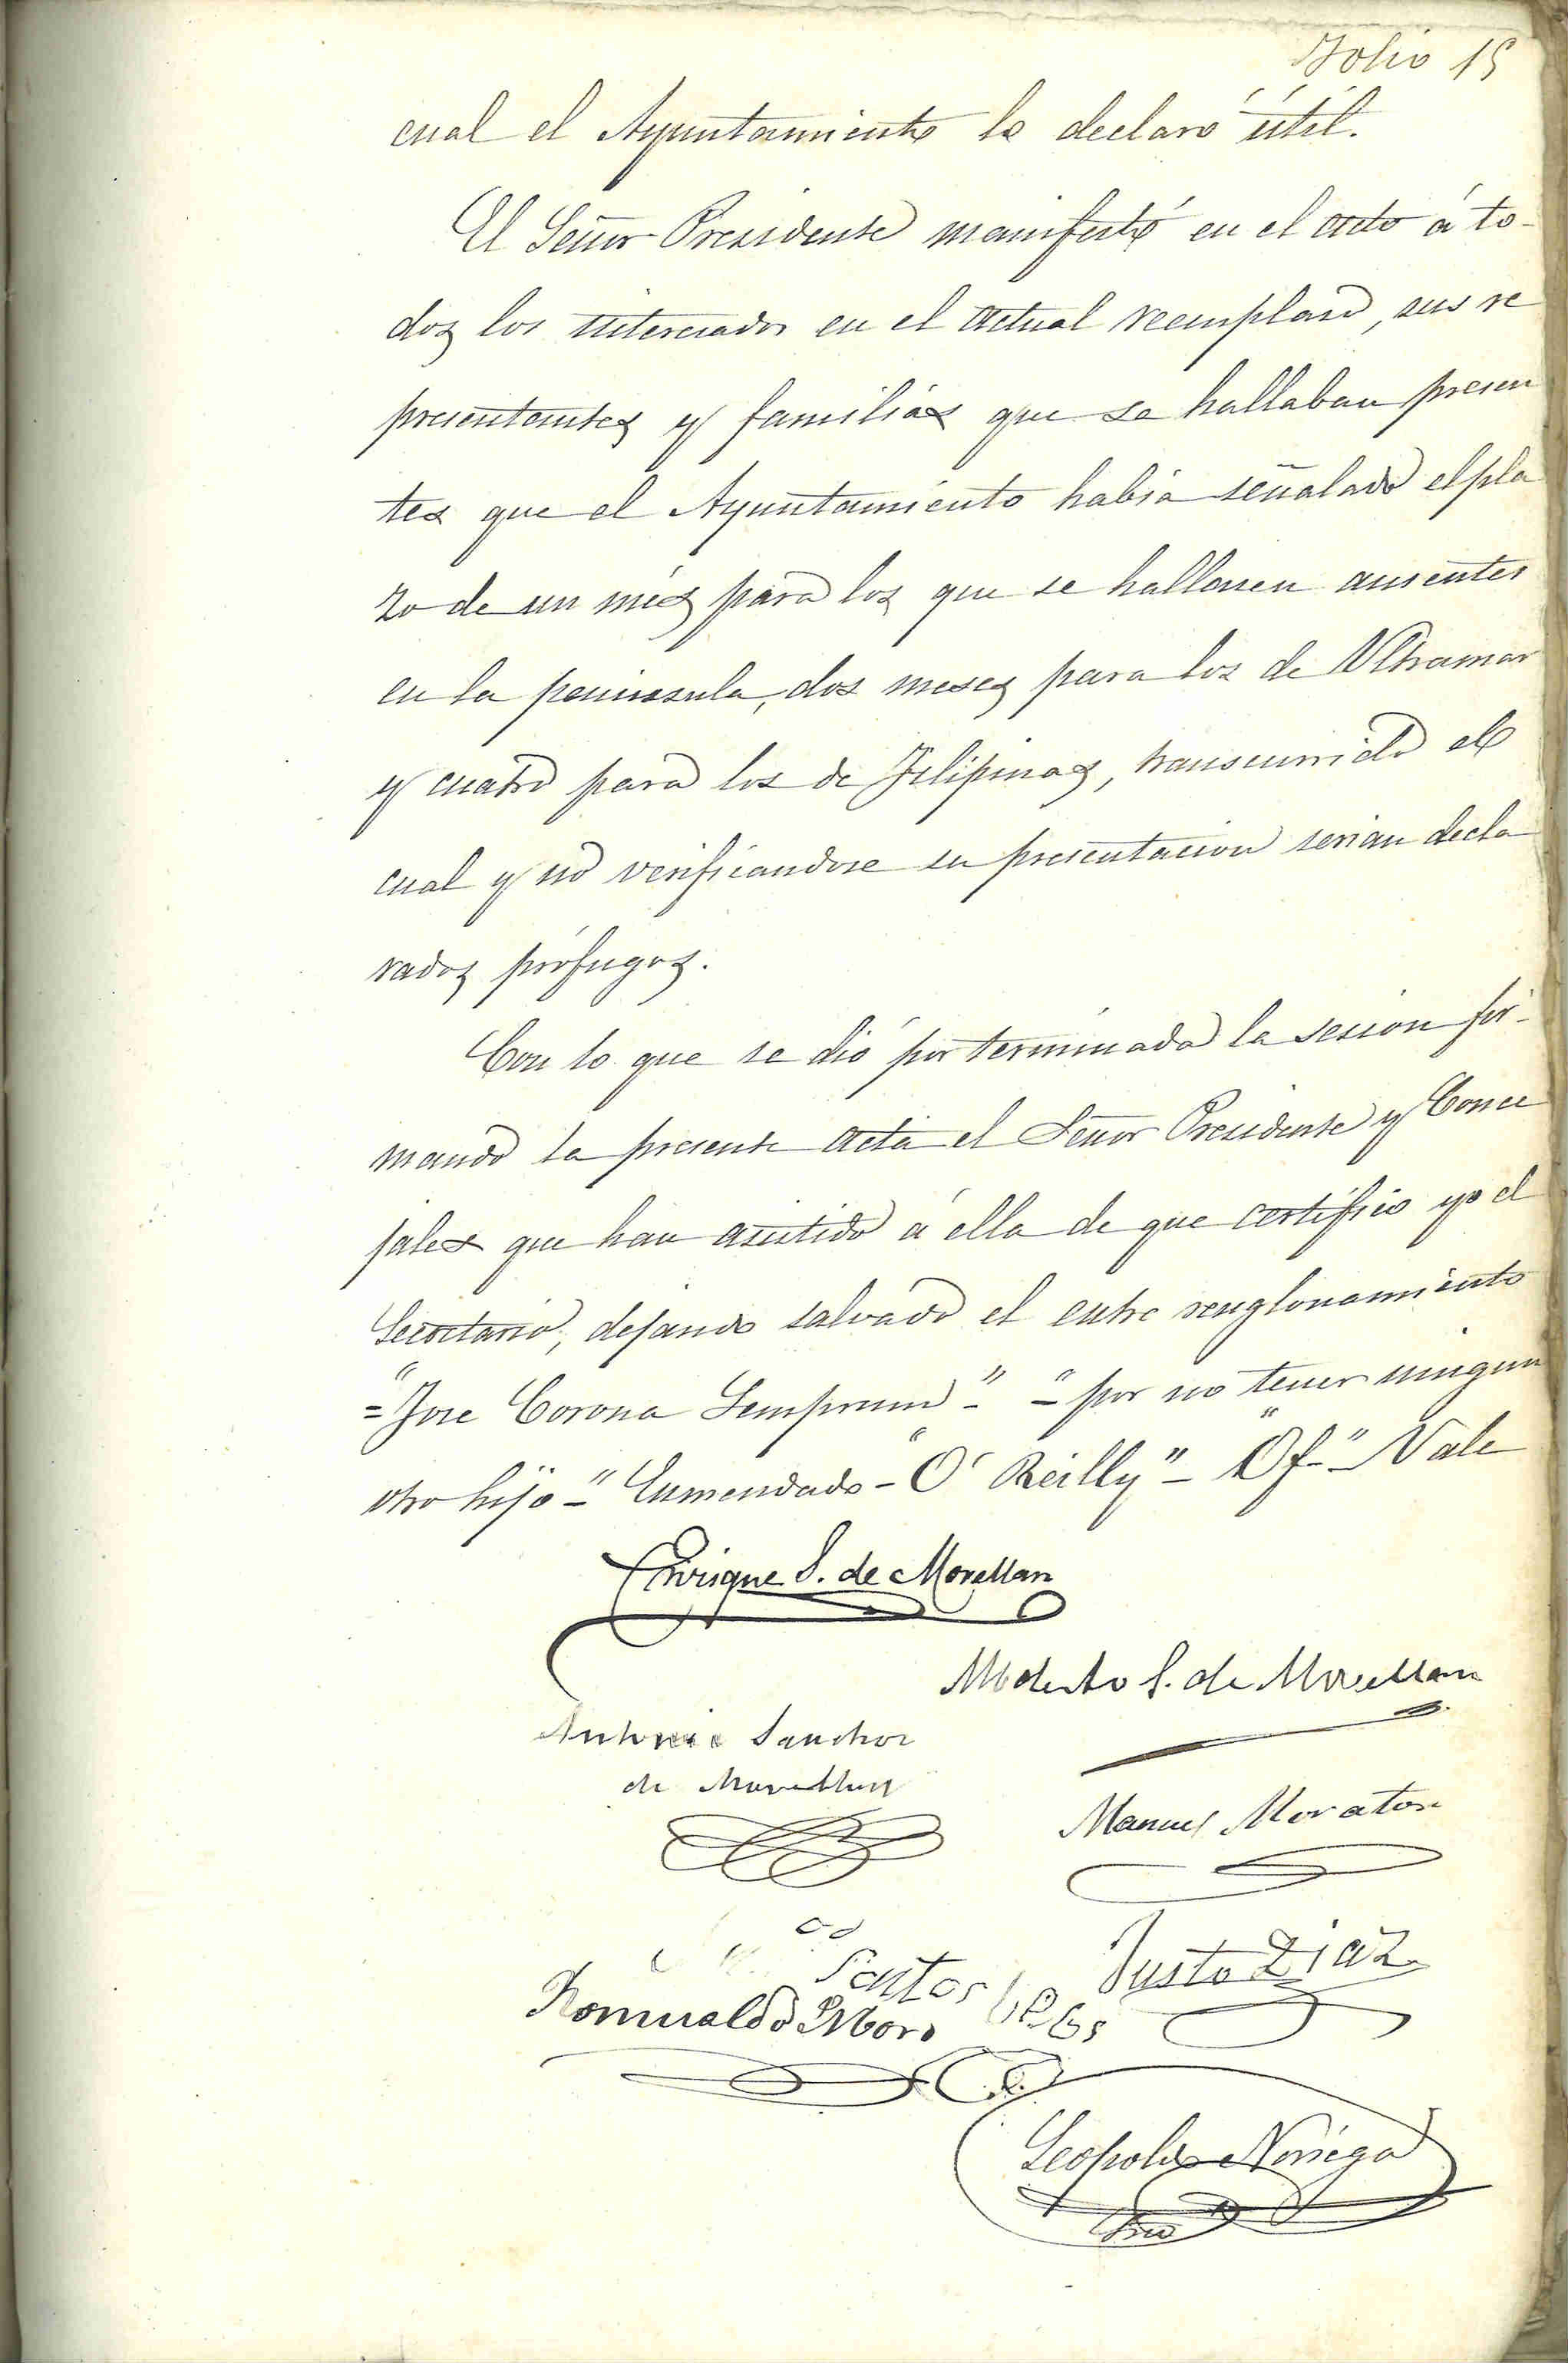 Folio 15
cual el Ayuntamiento lo declaró útil.
El Señor Presidente manifestó en el acto á to-
dos los interesados en el actual reemplaso, sus re
presentantes y familias que se hallaban presen
tes que el Ayuntamiento habia señalado el pla
zo de un més para los que se hallasen ausentes
en la peninsula, dos meses para los de Ultramar
y cuatro para los de Filipinas, transcurrido el
cual y no verificandose su presentacion serian decla
rados prófugos.
Con lo que se dió por terminada la sesion fir-
mando la presente acta el Señor Presidente y Conce
jales que han asistido á ella de que certifico yo el
Secretario, dejando salvado el entre renglonamiento
="Jose Corona Semprun"- "por no tener ningun
otro hijo-" Enmendado-"O'Reilly"- "Of"- Vale
Enrique S. de Movellan
Modesto S. de Movellan
Antonio Sanchez
de Movellan
Manuel Moraton
Justo Diaz
Santos
Romualdo Moro
Leopoldo Noriega
Srio